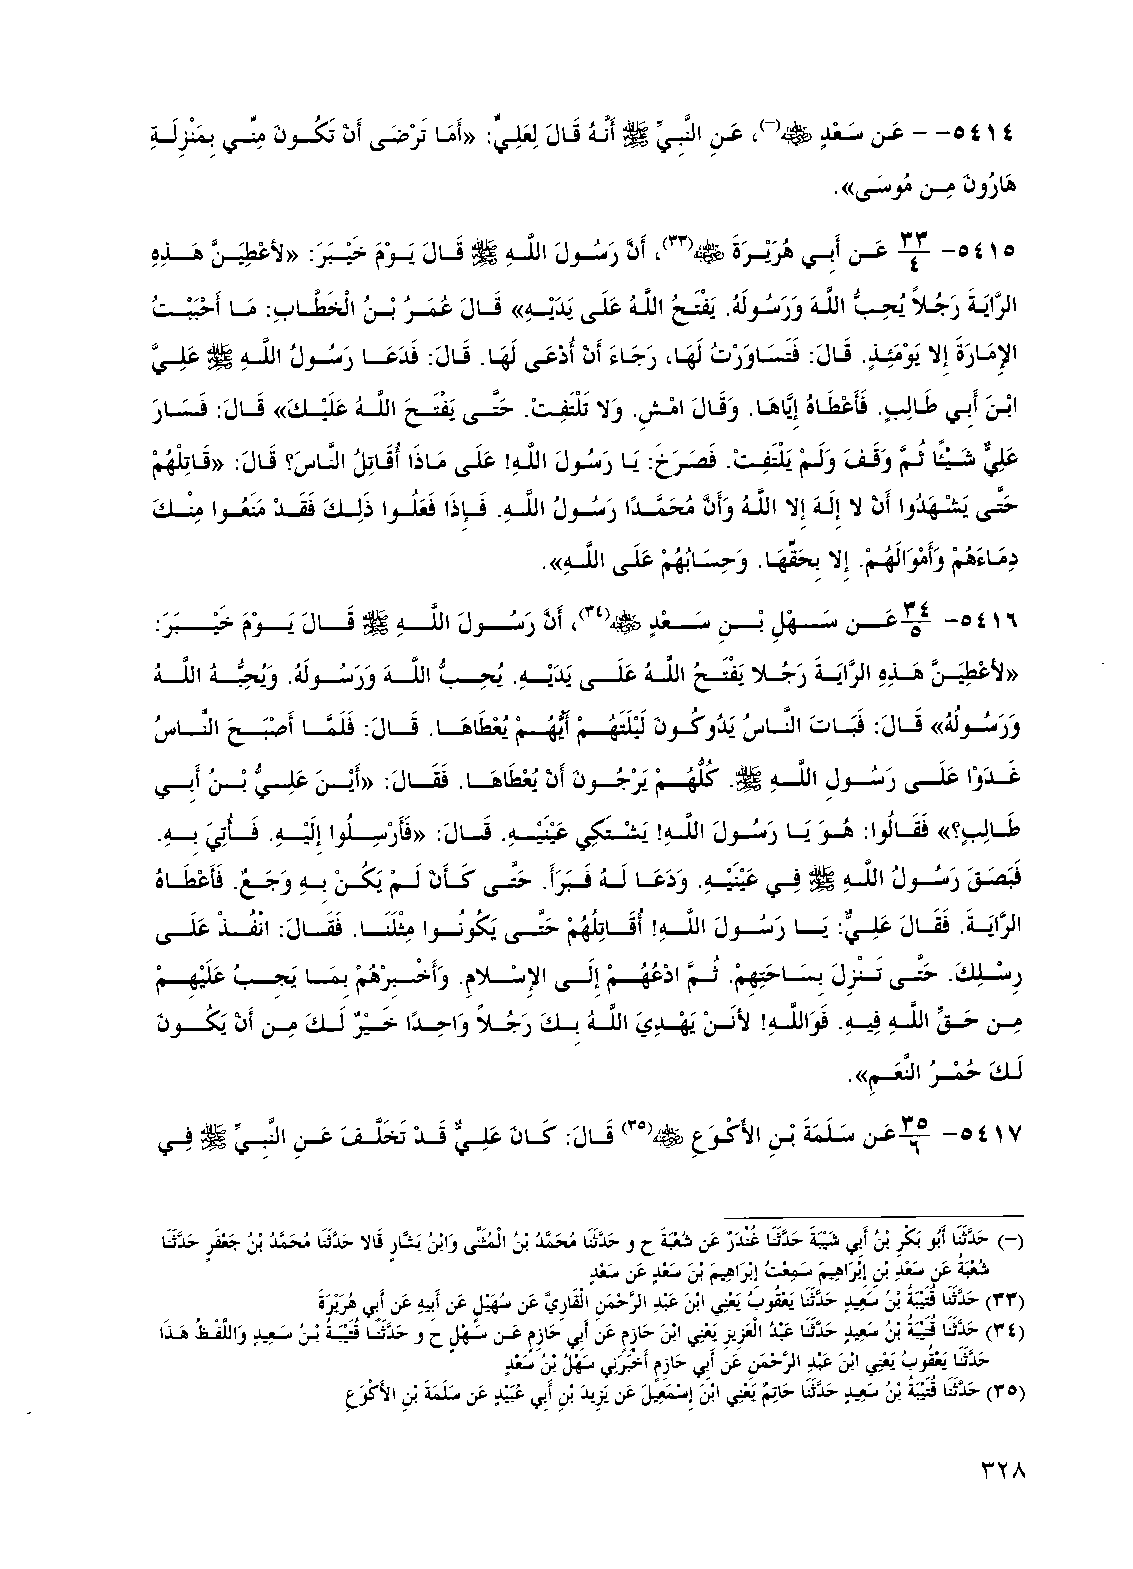 ٥٤١٤- - عَن سَعْدٍ ﷺ(–)، عَنِ النَّبِيِّ ﷺ أَنَّهُ قَالَ لِعَلِيٍّ: «أَمَا تَرْضَى أَنْ تَكُونَ مِنِّي بِمَنْزِلَةِ
هَارُونَ مِن مُوسَى».
٥٤١٥- ٣٣/٤ عَن أَبِي هُرَيْرَةَ ﷺ(٣٣)، أَنَّ رَسُولَ اللَّهِ ﷺ قَالَ يَوْمَ خَيْبَرَ: «لأُعْطِيَنَّ هَذِهِ
الرَّايَةَ رَجُلاً يُحِبُّ اللَّهَ وَرَسُولَهُ. يَفْتَحُ اللَّهُ عَلَى يَدَيْهِ» قَالَ عُمَرُ بْنُ الْخَطَّابِ: مَا أَحْبَبْتُ
الإِمَارَةَ إِلا يَوْمَئِذٍ. قَالَ: فَتَسَاوَرْتُ لَهَا، رَجَاءَ أَنْ أُدْعَى لَهَا. قَالَ: فَدَعَا رَسُولُ اللَّهِ ﷺ عَلِيَّ
ابْنَ أَبِي طَالِبٍ. فَأَعْطَاهُ إِيَّاهَا. وَقَالَ امْشِ. وَلا تَلْتَفِتْ. حَتَّى يَفْتَحَ اللَّهُ عَلَيْكَ» قَالَ: فَسَارَ
عَلِيٌّ شَيْئًا ثُمَّ وَقَفَ وَلَمْ يَلْتَفِتْ. فَصَرَخَ: يَا رَسُولَ اللَّهِ! عَلَى مَاذَا أُقَاتِلُ النَّاسَ؟ قَالَ: «قَاتِلْهُمْ
حَتَّى يَشْهَدُوا أَنْ لا إِلَهَ إِلا اللَّهُ وَأَنَّ مُحَمَّدًا رَسُولُ اللَّهِ. فَإِذَا فَعَلُوا ذَلِكَ فَقَدْ مَنَعُوا مِنْكَ
دِمَاءَهُمْ وَأَمْوَالَهُمْ. إِلا بِحَقِّهَا. وَحِسَابُهُمْ عَلَى اللَّهِ».
٥٤١٦- ٣٤/٥ عَن سَهْلِ بْنِ سَعْدٍ ﷺ(٣٤)، أَنَّ رَسُولَ اللَّهِ ﷺ قَالَ يَوْمَ خَيْبَرَ:
«لأُعْطِيَنَّ هَذِهِ الرَّايَةَ رَجُلا يَفْتَحُ اللَّهُ عَلَى يَدَيْهِ. يُحِبُّ اللَّهَ وَرَسُولَهُ. وَيُحِبُّهُ اللَّهُ
وَرَسُولُهُ» قَالَ: فَبَاتَ النَّاسُ يَدُوكُونَ لَيْلَتَهُمْ أَيُّهُمْ يُعْطَاهَا. قَالَ: فَلَمَّا أَصْبَحَ النَّاسُ
غَدَوْا عَلَى رَسُولِ اللَّهِ ﷺ. كُلُّهُمْ يَرْجُونَ أَنْ يُعْطَاهَا. فَقَالَ: «أَيْنَ عَلِيُّ بْنُ أَبِي
طَالِبٍ؟» فَقَالُوا: هُوَ يَا رَسُولَ اللَّهِ! يَشْتَكِي عَيْنَيْهِ. قَالَ: «فَأَرْسِلُوا إِلَيْهِ. فَأُتِيَ بِهِ.
فَبَصَقَ رَسُولُ اللَّهِ ﷺ فِي عَيْنَيْهِ. وَدَعَا لَهُ فَبَرَأَ. حَتَّى كَأَنْ لَمْ يَكُنْ بِهِ وَجَعٌ. فَأَعْطَاهُ
الرَّايَةَ. فَقَالَ عَلِيٌّ: يَا رَسُولَ اللَّهِ! أُقَاتِلُهُمْ حَتَّى يَكُونُوا مِثْلَنَا. فَقَالَ: انْفُذْ عَلَى
رِسْلِكَ. حَتَّى تَنْزِلَ بِسَاحَتِهِمْ. ثُمَّ ادْعُهُمْ إِلَى الإِسْلامِ. وَأَخْبِرْهُمْ بِمَا يَجِبُ عَلَيْهِمْ
مِن حَقِّ اللَّهِ فِيهِ. فَوَاللَّهِ! لأَنْ يَهْدِيَ اللَّهُ بِكَ رَجُلاً وَاحِدًا خَيْرٌ لَكَ مِن أَنْ يَكُونَ
لَكَ حُمْرُ النَّعَمِ».
٥٤١٧- ٣٥/٦ عَن سَلَمَةَ بْنِ الأَكْوَعِ ﷺ(٣٥) قَالَ: كَانَ عَلِيٌّ قَدْ تَخَلَّفَ عَنِ النَّبِيِّ ﷺ فِي
(–) حَدَّثَنَا أَبُو بَكْرِ بْنُ أَبِي شَيْبَةَ حَدَّثَنَا غُنْدَرٌ عَن شُعْبَةَ ح و حَدَّثَنَا مُحَمَّدُ بْنُ الْمُثَنَّى وَابْنُ بَشَّارٍ قَالا حَدَّثَنَا مُحَمَّدُ بْنُ جَعْفَرٍ حَدَّثَنَا
شُعْبَةُ عَن سَعْدِ بْنِ إِبْرَاهِيمَ سَمِعْتُ إِبْرَاهِيمَ بْنَ سَعْدٍ عَن سَعْدٍ
(٣٣) حَدَّثَنَا قُتَيْبَةُ بْنُ سَعِيدٍ حَدَّثَنَا يَعْقُوبُ يَعْنِي ابْنَ عَبْدِ الرَّحْمَنِ الْقَارِيَّ عَن سُهَيْلٍ عَن أَبِيهِ عَن أَبِي هُرَيْرَةَ
(٣٤) حَدَّثَنَا قُتَيْبَةُ بْنُ سَعِيدٍ حَدَّثَنَا عَبْدُ الْعَزِيزِ يَعْنِي ابْنَ حَازِمٍ عَن أَبِي حَازِمٍ عَن سَهْلٍ ح و حَدَّثَنَا قُتَيْبَةُ بْنُ سَعِيدٍ وَاللَّفْظُ هَذَا
حَدَّثَنَا يَعْقُوبُ يَعْنِي ابْنَ عَبْدِ الرَّحْمَنِ عَن أَبِي حَازِمٍ أَخْبَرَنِي سَهْلُ بْنُ سَعْدٍ
(٣٥) حَدَّثَنَا قُتَيْبَةُ بْنُ سَعِيدٍ حَدَّثَنَا حَاتِمٌ يَعْنِي ابْنَ إِسْمَعِيلَ عَن يَزِيدَ بْنِ أَبِي عُبَيْدٍ عَن سَلَمَةَ بْنِ الأَكْوَعِ
٣٢٨